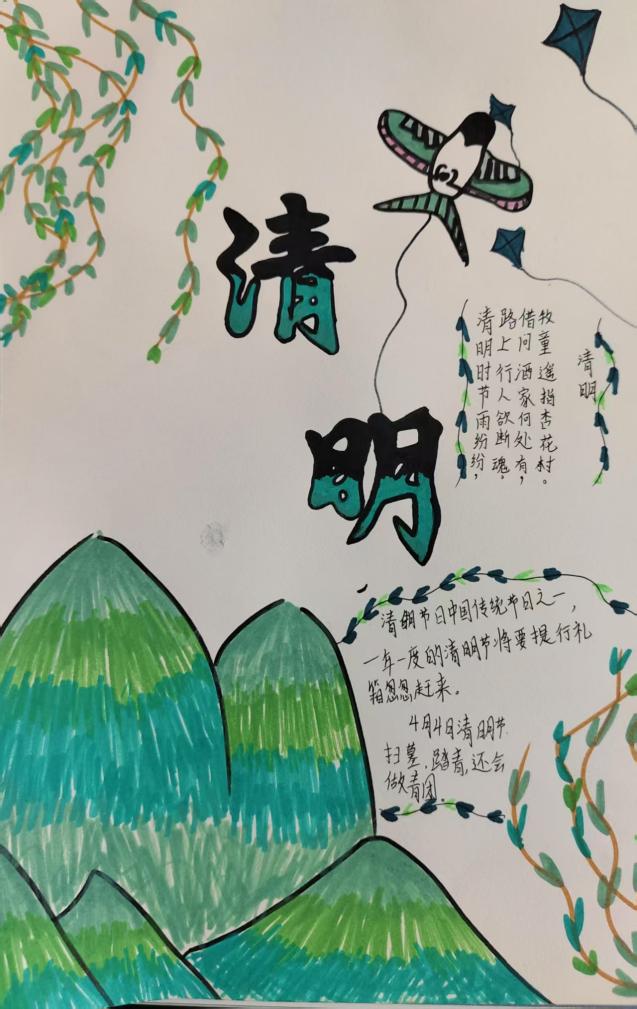 清
明
清明
清明时节雨纷纷，
路上行人欲断魂.
借问酒家何处有，
牧童遥指杏花村。
清明节日中国传统节日之一，
一年一度的清明节将要提行礼
箱忽忽赶来。
4月4日清明节.
扫墓,踏青,还会
做青团.